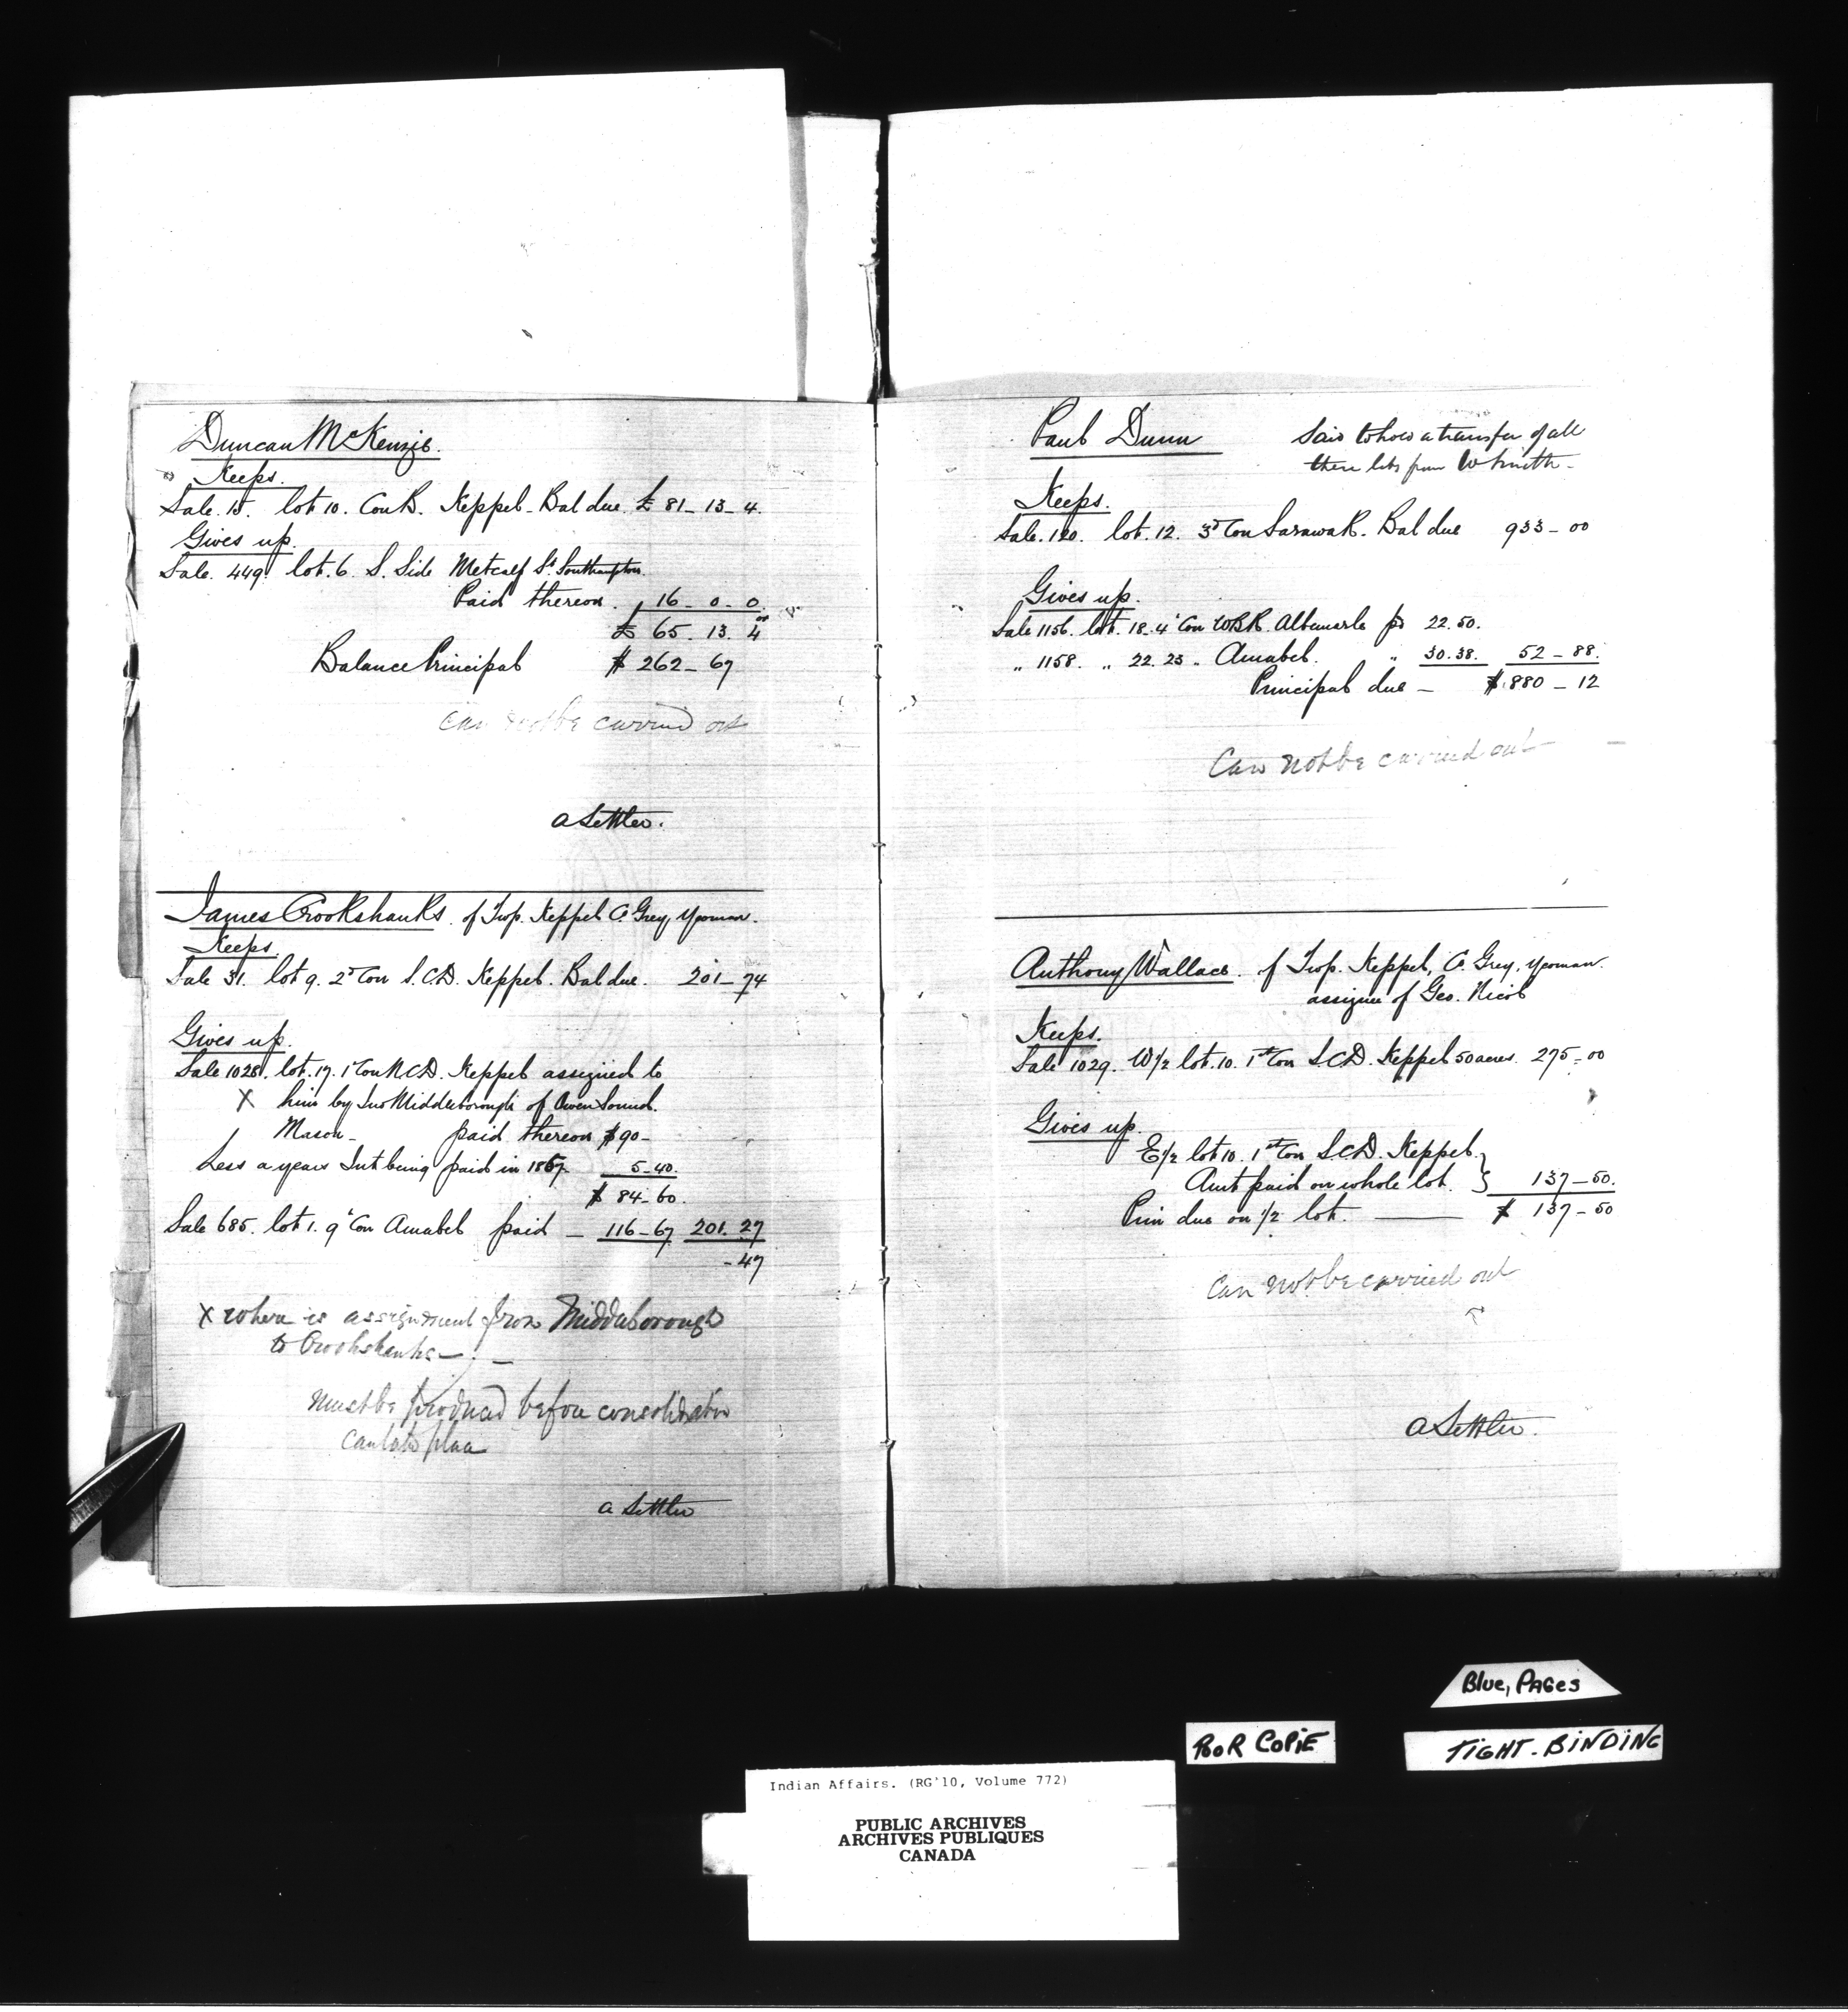 Duncan McKenzie.
Keeps.
Sale. 15. lot 10. Con B. Keppel - Bal due £ 81 - 13 - 4.
Gives up.
Sale. 449. lot. 6. S. Side Metcalf St. Southampton.
Paid thereon. 16 - 0 - 0
£ 65. 13. 4 or
Balance Principal $ 262 - 67
Can not be carried out
a Settler.
James Crookshanks. of Twp. Keppel C. Grey, Yeoman.
Keeps.
Sale 31. lot 9. 2d Con S.C.D. Keppel. Bal due. 201 - 74
Gives up.
Sale 1028. lot. 17. 1st Con N.C.D. Keppel assigned to
X him by Jno Middleborough of Owen Sound.
Mason - paid thereon $90 -
Less a years Int being paid in 1867. 5 - 40.
$ 84 - 60.
Sale 685. lot 1. 9' Con Amabel paid - 116 - 67 201. 27
- 47
X where is assignment from Middleborough
to Crookshanks -. -
Must be produced before consolidation
can take place
a Settler
Paul Dunn
Said to hold a transfer of all
these lots from W Smith -
Keeps.
Sale. 120. lot. 12. 3d Con Sarawak. Bal due 933 - 00
Gives up.
Sale 1156. lot. 18. 4' Con W.B.R. Albemarle pd 22.50.
" 1158. " 22. 23 " Amabel. " 30.38. 52 - 88.
Principal due - $ 880 - 12
Can not be carried out -
Anthony Wallace. of Twp. Keppel, C. Grey. Yeoman.
assignee of Geo. Nicol
Keeps.
Sale 1029. W1/2 lot. 10. 1st Con S.C.D. Keppel 50 acres. 275 = 00
Gives up.
E1/2 lot 10. 1st Con S.C.D. Keppel.
Amt paid on whole lot. } 137 - 50.
Prin due on 1/2 lot. — $ 137 - 50
Can not be carried out
a Settler.
Blue, PAGes
POOR COPiE
TiGHT - BiNDiNG
Indian Affairs. (RG 10, Volume 772)
PUBLIC ARCHIVES
ARCHIVES PUBLIQUES
CANADA